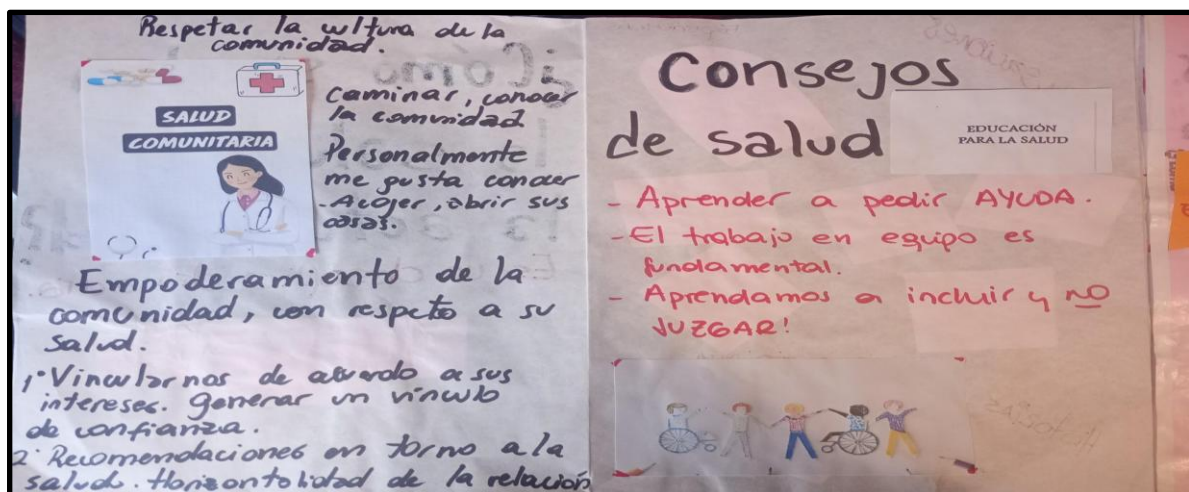 Respetar la cultura de la
comunidad.
SALUD
COMUNITARIA
Caminar, conocer
la comunidad
Personalmente
me gusta conocer
- Acojer, abrir sus
casas.
Empoderamiento de la
comunidad, con respeto a su
salud.
1. Vincularnos de acuerdo a sus
intereses. generar un vínculo
de confianza.
2. Recomendaciones en torno a la
salud. Horizontalidad de la relación
Consejos
de salud
EDUCACIÓN
PARA LA SALUD
- Aprender a pedir AYUDA.
- El trabajo en equipo es
fundamental.
- Aprendamos a incluir y NO
JUZGAR!